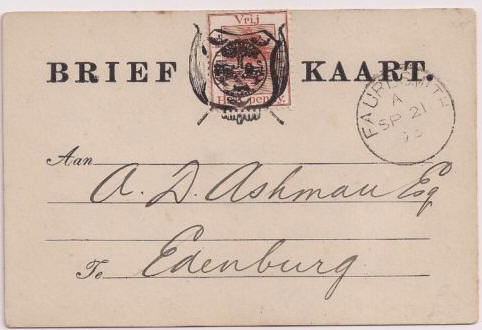 Vrij
BRIEF KAART.
Half penny.
FAURESMITH
A
SP 21
Aan
A. D. Ashman Esq
Te Edenburg